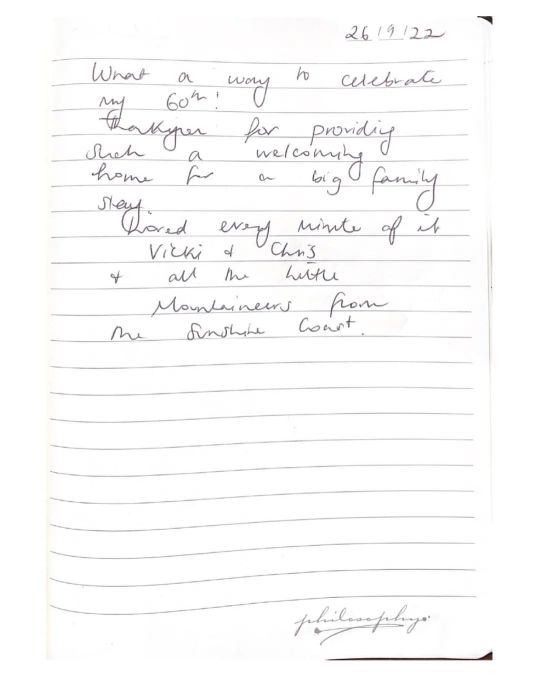 26/9/22
What a way to celebrate
my 60th!
Thankyou for providing
such a welcoming
home for a big family
stay.
Loved every minute of it
Vicki & Chris
& all the little
Mountaineers from
the Sunshine Coast.
philosophy